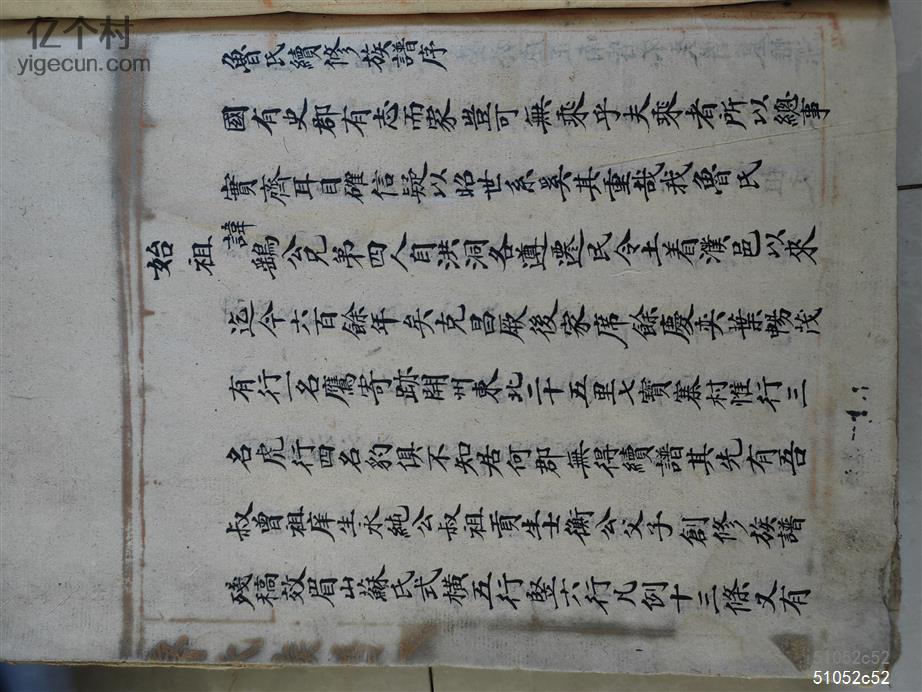 亿个村
yigecun.com
魯氏續修族譜序
國有史郡有志而家豈可無乘乎夫乘者所以總事
實齊耳目確信疑以昭世系奚其重哉我魯氏
始祖諱鷂公兄第四人自洪洞各遵遷民令土着濮邑以來
迄今六百餘年矣克昌厥後家席餘慶奕葉暢茂
有行一名鷹寄跡開州東北二十五里七寶寨村惟行三
名虎行四名豹俱不知居何郡無得續譜其先有吾
叔曾祖庠生永純公叔祖貢生士衡公父子創修族譜
殘稿效眉山蘇氏式橫五行竪六行凡例十三條又有
51052c52
51052c52